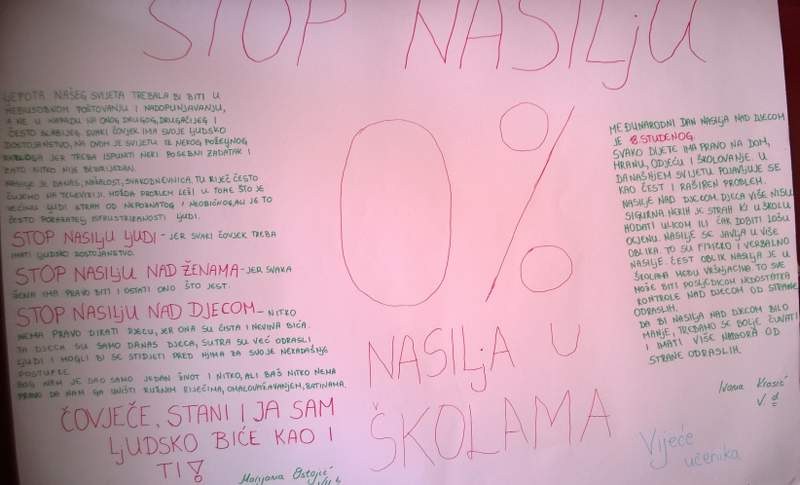 STOP NASILJU
LJEPOTA NAŠEG SVIJETA TREBALA BI BITI U
MEĐUSOBNOM POŠTOVANJU I NADOPUNJAVANJU,
A NE U NAPADU NA ONOG DRUGOG, DRUGAČIJEG I
ČESTO SLABIJEG. SVAKI ČOVJEK IMA SVOJE LJUDSKO
DOSTOJANSTVO, NA OVOM JE SVIJETU IZ NEKOG POŽELJNOG
RAZLOGA JER TREBA ISPUNITI NEKI POSEBNI ZADATAK I
ZATO NITKO NIJE BEZVRIJEDAN.
NASILJE JE DANAS, NAŽALOST, SVAKODNEVNICA. TU RIJEČ ČESTO
ČUJEMO NA TELEVIZIJI. MOŽDA PROBLEM LEŽI U TOME ŠTO JE
VEĆINU LJUDI STRAH OD NEPOZNATOG I NEOBIČNOG, ALI JE TO
ČESTO POKAZATELJ ISFRUSTRIRANOSTI LJUDI.
STOP NASILJU LJUDI - JER SVAKI ČOVJEK TREBA
IMATI LJUDSKO DOSTOJANSTVO.
STOP NASILJU NAD ŽENAMA - JER SVAKA
ŽENA IMA PRAVO BITI I OSTATI ONO ŠTO JEST.
STOP NASILJU NAD DJECOM - NITKO
NEMA PRAVO DIRATI DJECU, JER ONA SU ČISTA I NEVINA BIĆA.
TA DJECA SU SAMO DANAS DJECA, SUTRA SU VEĆ ODRASLI
LJUDI I MOGLI BI SE STIDJETI PRED NJIMA ZA SVOJE NEKADAŠNJE
POSTUPKE.
BOG NAM JE DAO SAMO JEDAN ŽIVOT I NITKO, ALI BAŠ NITKO NEMA
PRAVO DA NAM GA UNIŠTI RUŽNIM RIJEČIMA, OMALOVAŽAVANJEM, BATINAMA.
ČOVJEČE, STANI I JA SAM
LJUDSKO BIĆE KAO I
TI!
Marijana Ostojić
0%
NASILJA U
ŠKOLAMA
MEĐUNARODNI DAN NASILJA NAD DJECOM
JE 8. STUDENOG.
SVAKO DIJETE IMA PRAVO NA DOM,
HRANU, ODJEĆU I ŠKOLOVANJE. U
DANAŠNJEM SVIJETU POJAVLJUJE SE
KAO ČEST I RAŠIREN PROBLEM.
NASILJE NAD DJECOM. DJECA VIŠE NISU
SIGURNA. NEKIH JE STRAH IĆI U ŠKOLU
HODATI ULICOM ILI ČAK DOBITI LOŠU
OCJENU. NASILJE SE JAVLJA U VIŠE
OBLIKA. TO SU FIZIČKO I VERBALNO
NASILJE. ČEST OBLIK NASILJA JE U
ŠKOLAMA MEĐU VRŠNJACIMA. TO SVE
MOŽE BITI POSLJEDICOM NEDOSTATKA
KONTROLE NAD DJECOM OD STRANE
ODRASLIH.
DA BI NASILJA NAD DJECOM BILO
MANJE, TREBAMO SE BOLJE ČUVATI
I IMATI VIŠE NADZORA OD
STRANE ODRASLIH.
Ivana Krasić
V. d
Vijeće
učenika